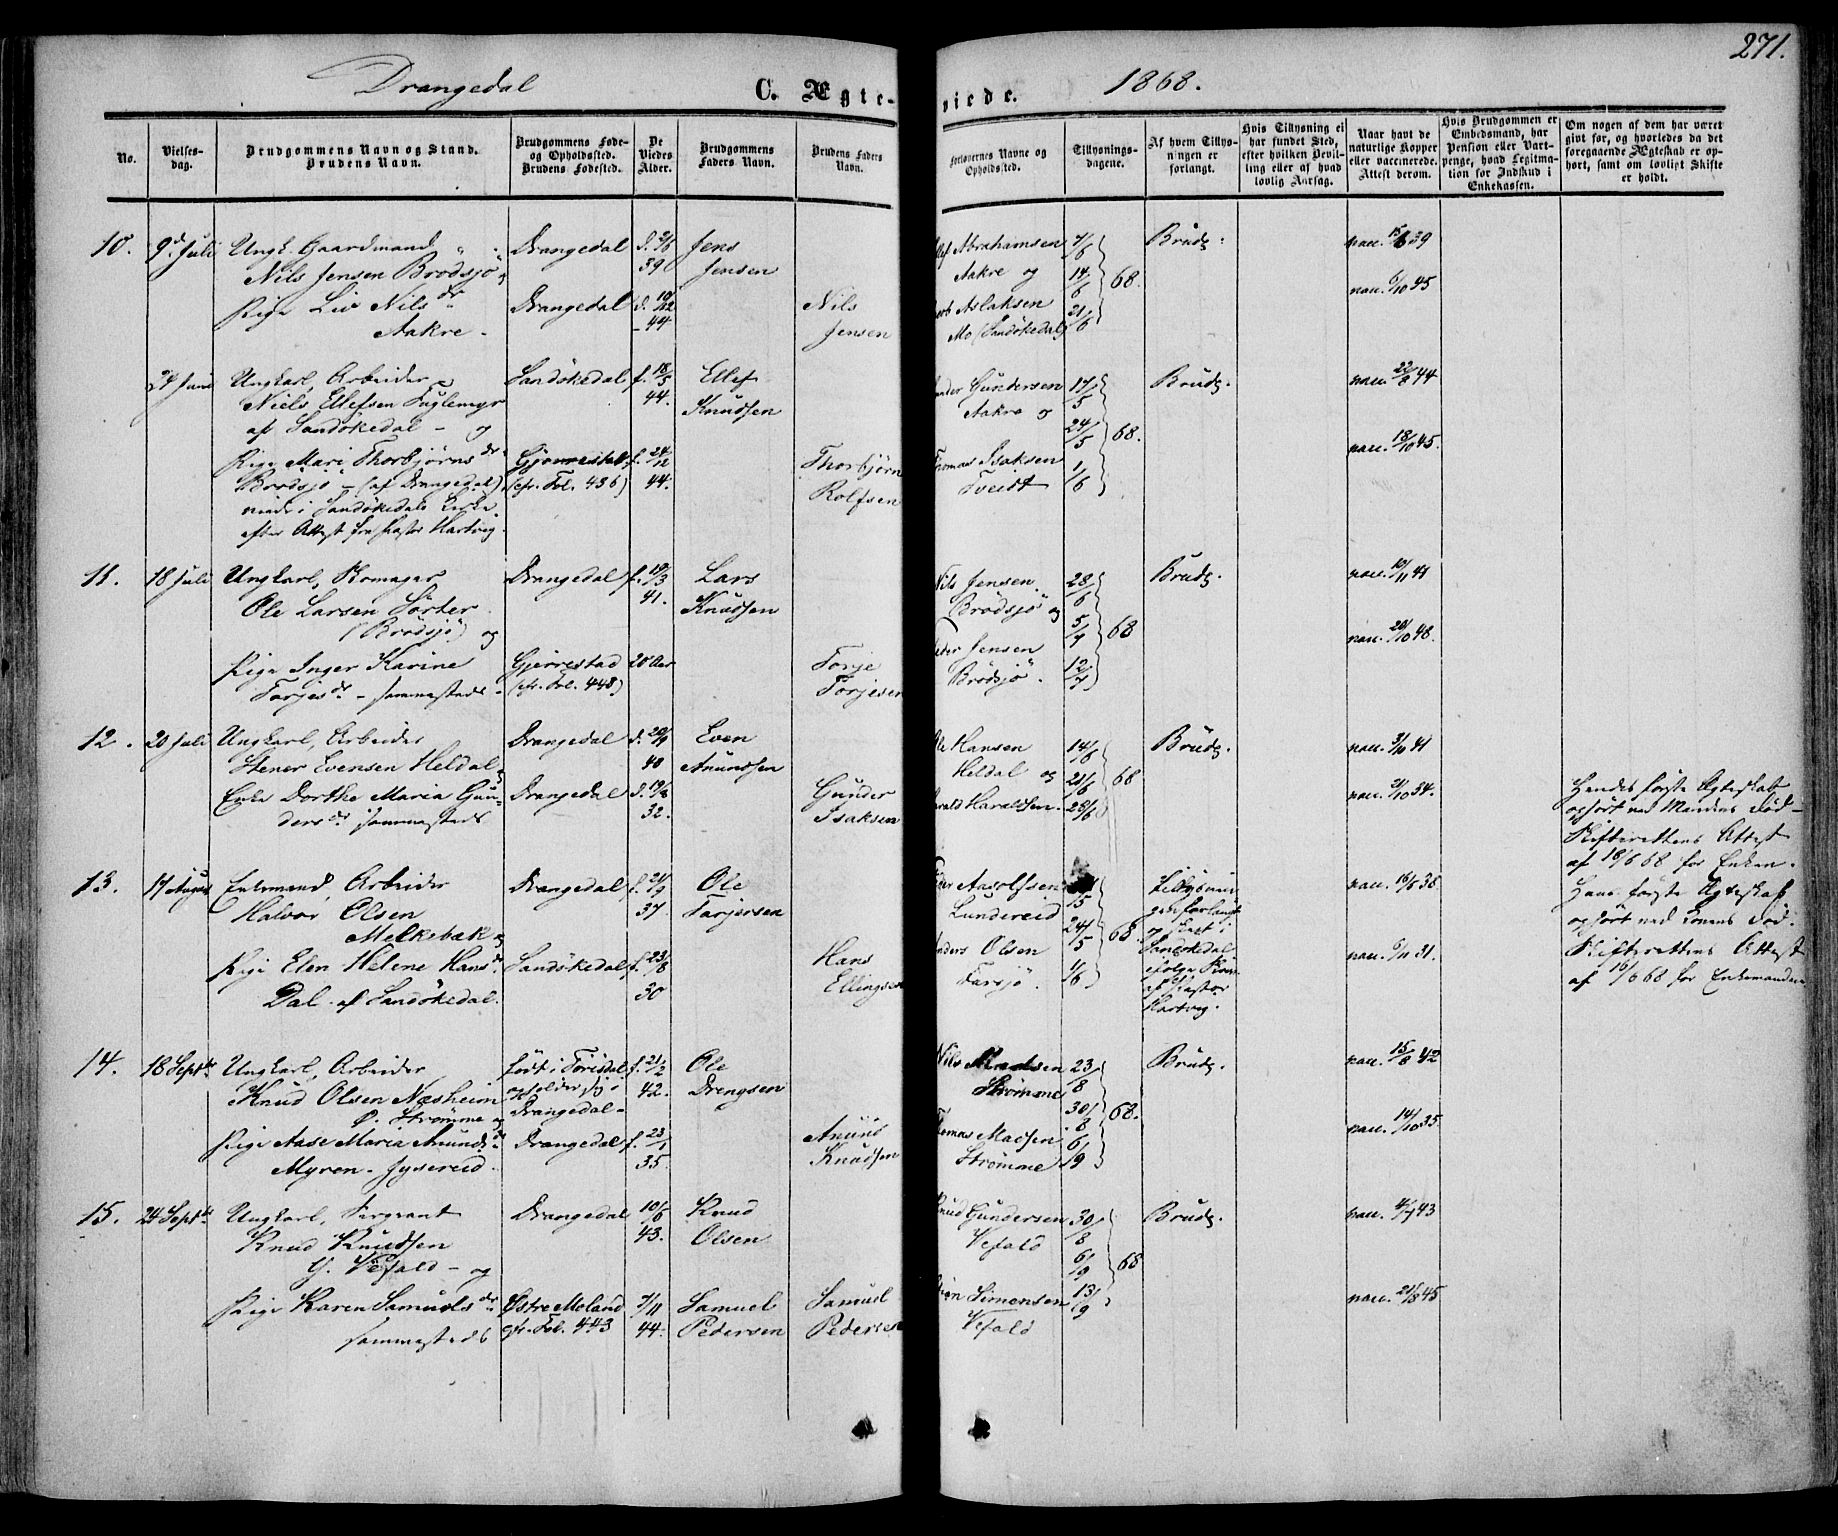 271.
Drangedal C. Ægte- viede. 1868.
No.
Vielses-
dag.
Brudgommens Navn og Stand.
Brudens Navn.
Brudgommens Føde-
og Opholdssted.
Brudens Fødested.
De
Viedes
Alder.
Brudgommens
Faders Navn.
Brudens Faders
Navn.
Forlovernes Navne og
Opholdssted.
Tillysnings-
dagene.
Af hvem Tillys-
ningen er
forlangt.
Hvis Tillysning ei
har fundet Sted,
efter hvilken Bevil-
ling eller af hvad
lovlig Aarsag.
Naar havt de
naturlige Kopper
eller vaccinerede.
Attest derom.
Hvis Brudgommen er
Embedsmand, har
Pension eller Vart-
penge, hvad Legitima-
tion for Indskud i
Enkekassen.
Om nogen af dem har været
gift før, og hvorledes da det
foregaaende Ægteskab er op-
hørt, samt om lovligt Skifte
er holdt.
10. 9d Juli Ungk. Gaardmand
Nils Jensen Brødsjö og
Pige Liv Nilsdr
Aakre
Drangedal
Drangedal
39
44
Jens
Jensen
Nils
Jensen
Abrahamsen
Aakre og
Aslaksen
Mo (Sandökedal)
7/6
14/6
21/6
68.
Brudg.
vacc. 39
vacc. 6/10 45
24 Juni Ungkarl, Arbeider
Niels Ellefsen Fuglemyr
af Sandökedal - og
Pige Mari Thorbjørnsdr
Brödsjö - (af Drangedal)
viede i Sandökedals Kirke
efter Attest fra Pastor Hartvig.
Sandökedal
Gjerrestad
(cfr. Fol. 436)
f. 18/5
44.
f. 24/12
44.
Ellef
Knudsen
Thorbjörn
Rolfsen
Gundersen
Aakre og
Thomas Isaksen
Tveidt
17/5
24/5
1/6
68.
Brudg.
vacc. 22/8 44
vacc. 18/10 45.
11. 18 Juli Ungkarl, Skomager
Ole Larsen Sörter
(Brödsjö) og
Pige Inger Karine
Torjesdr - sammesteds -
Drangedal
Gjerrestad
(cfr. Fol. 448)
f. 19/3
41.
20 Aar
Lars
Knudsen
Torje
Torjesen
Nils Jensen
Brödsjö og
Peder Jensen
Brödsjö.
28/6
5/7
12/7
68
Brudg.
vacc. 10/11 41
vacc. 20/10 48.
12. 20 Juli Ungkarl, Arbeider
Stener Evensen Heldal og
Enke Dorthe Maria Gun-
dersdr sammesteds
Drangedal
Drangedal
40
32.
Even
Anundsen
Gunder
Isaksen
Ole Hansen
Heldal og
Harald Haraldsen.
14/6
21/6
28/6
68
Brudg.
vacc. 3/10 41
vacc. 34.
Hendes förste Ægteskab
ophört ved Mandens Död -
Skifterettens Attest
af 18/6 68 for Enken.
13. 17 August Enkemand Arbeider
Halvor Olsen
Melkebæk og
Pige Elen Helene Hansdr
Dal - af Sandökedal.
Drangedal
Sandökedal
f. 21/9
37
f. 23/8
30
Ole
Torjersen
Hans
Ellingsen
Aasolfsen
Lundereid
Anders Olsen
Farsjö.
24/5
1/6
68.
Tillysnin-
gen forlangt
og skeet i
Sandökedal
ifölge
af Pastor
Hartvig.
vacc. 38
vacc. 6/11 31.
Hans förste Ægteskab
ophört ved Konens Död.
Skifterettens Attest
af 16/6 68 for Enkemanden
14. 18 Septbr Ungkarl, Arbeider
Knud Olsen Næsheim
P. Strømme og
Pige Aase Maria Anundsdr
Myren - Jysereid.
født i Törisdal
opholder sig i
Drangedal -
Drangedal
f. 21/2
42.
f. 23/1
35.
Ole
Drengsen
Anund
Knudsen
Nils Madsen
Strømme
Thomas Madsen
Strømme
23/8
30/8
6/9
68.
Brudg.
vacc. 15/8 42
vacc. 14/10 35
15. 24 Septbr Ungkarl, Sergeant
Knud Knudsen
Y. Vefald - og
Pige Karen Samuelsdr
sammesteds
Drangedal
Østre Moland
cfr. Fol. 443
10/6
43.
7/11
44.
Knud
Olsen
Samuel
Pedersen
Samuel
Pedersen
Knud Gundersen
Vefald
Simonsen
Vefald
30/8
6/9
13/9
68
Brudg.
vacc. 4/7 43
vacc. 21/8 45